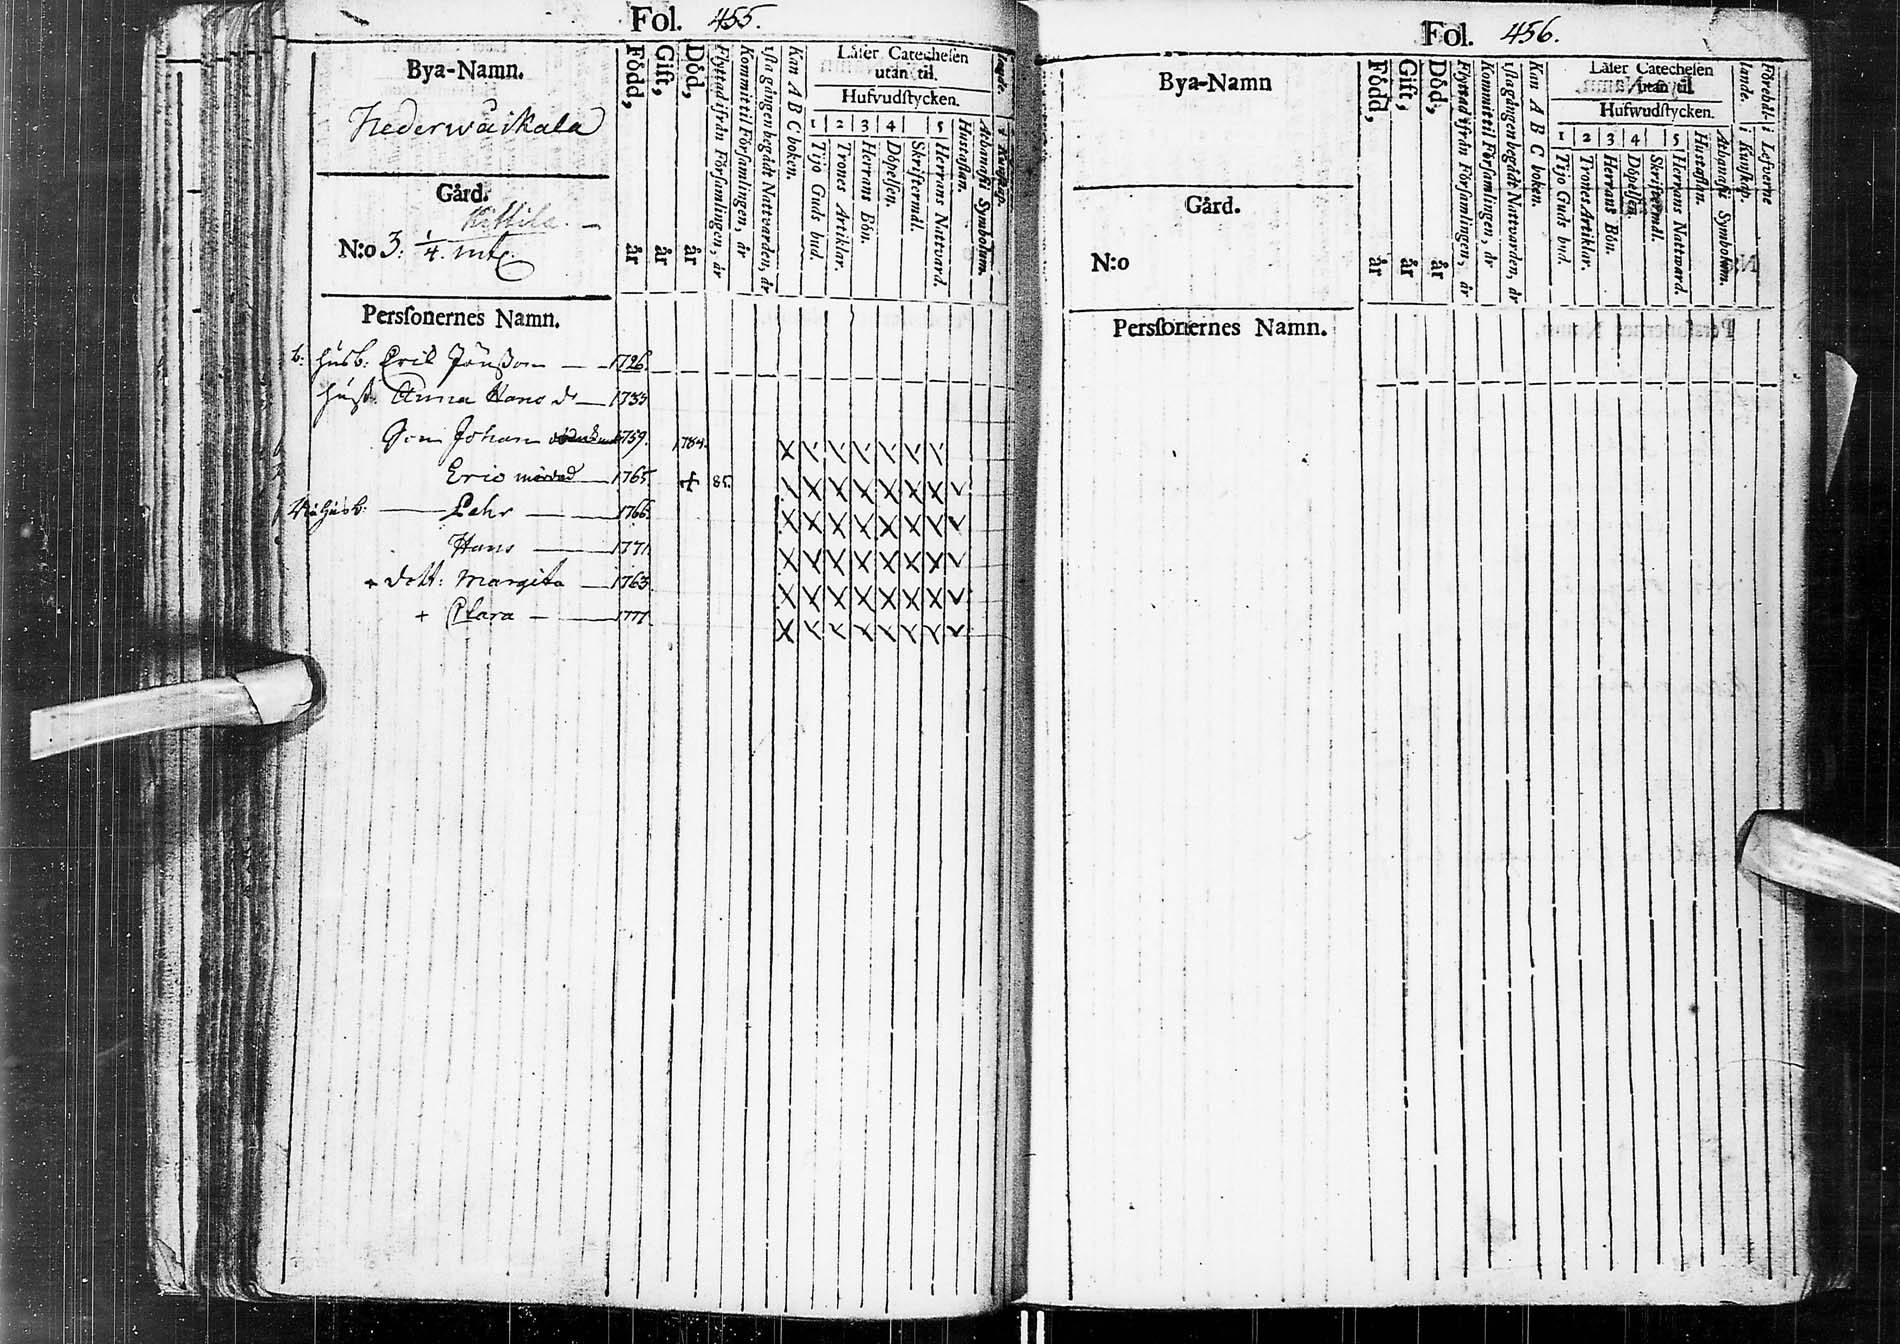 Fol. 455.
Bya-Namn.
Nederwäikala
Gård.
Kittila.
N:o 3. 1/4. mtl.
Född, år
Gift, år
Död, år
Flyttad ifrån Församlingen, år
Kommit til Församlingen, år
1sta gången begådt Nattvarden, år
Kan A B C boken.
Läser Catechesen
utan til.
Hufvudstycken.
1 2 3 4 5
Tijo Guds bud.
Trones Artiklar.
Herrans Bön.
Döpelsen.
Skriftermål.
Herrans Nattvard.
Hustaflan.
Athanasii Symbolum.
Personernes Namn.
b: husb: Eric Jönsson 1726.
hust: Anna Hans dr 1735
Son Johan 1759. 1784.
Eric 1765. + 85.
husb: Pehr 1766.
Hans 1771.
+ dott: Margita 1763.
+ Clara 1777.
Fol. 456.
Bya-Namn
Gård.
N:o
Född, år
Gift, år
Död, år
Flyttad ifrån Församlingen, år
Kommit til Församlingen, år
1sta gången begådt Nattvarden, år
Kan A B C boken.
Läser Catechesen
utan til.
Hufwudstycken.
1 2 3 4 5
Tijo Guds bud.
Trones Artiklar.
Herrans Bön.
Döpelsen.
Skriftermål.
Herrans Nattvard.
Hustaflan.
Athanasii Symbolum.
Förehål-
lande.
i Kunskap.
i Lefverne
Personernes Namn.